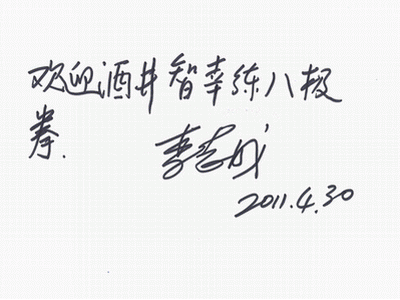 欢迎酒井智幸练八极
拳.
李志成
2011.4.30